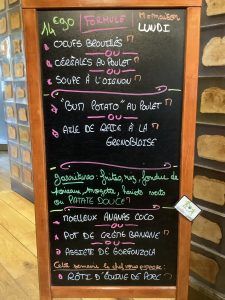 14 €90 FORMULE
LUNDI
OEUFS BROUILLÉS
OU
CÉRÉALES AU POULET
OU
SOUPE À L'OIGNON
"BUN POTATO" AU POULET
OU
AILE DE RAIE À LA
GRENOBLOISE
Garnitures: frites, riz, fondue de
poireaux, mogette, haricots verts
ou PATATE DOUCE
MOELLEUX ANANAS COCO
OU
POT DE CRÈME BANANE
OU
ASSIETTE DE GORGONZOLA
Cette semaine le chef vous propose:
RÔTI D'ÉCHINE DE PORC